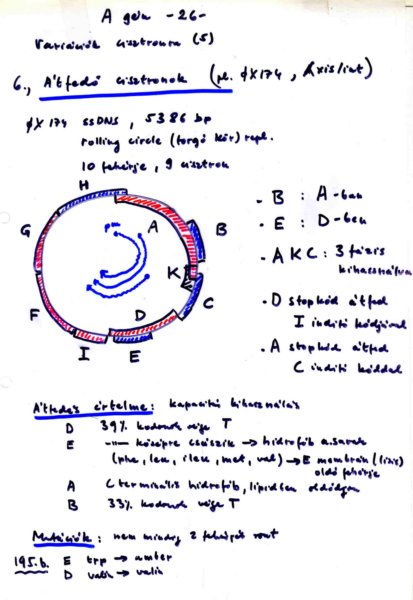 A gén -26-
Variációk cisztronra (5)
6., Átfedő cisztronok (pl. ϕX174,
ϕX174 ssDNS, 5386 bp
rolling circle (forgó kör) repl.
10 fehérje, 9 cisztron
H
G
A
B
K
C
F
D
I
E
- B : A-ban
- E : D-ben
- A K C : 3 fázis
kihasználva
- D stopkód átfed
I indító kódjával
- A stopkód átfed
C indító kóddal
Átfedés értelme: kapacitás kihasználás
D 39% kodonok vége T
E -"- középre csúszik → hidrofób a.savak
(phe, leu, ileu, met, val) → E membrán (lízis)
oldó fehérje
A C terminális hidrofób, lipidben oldódjon
B 33% kodonok vége T
Mutációk: nem mindig 2 fehérjét ront
195.b. E trp → amber
D valin → valin